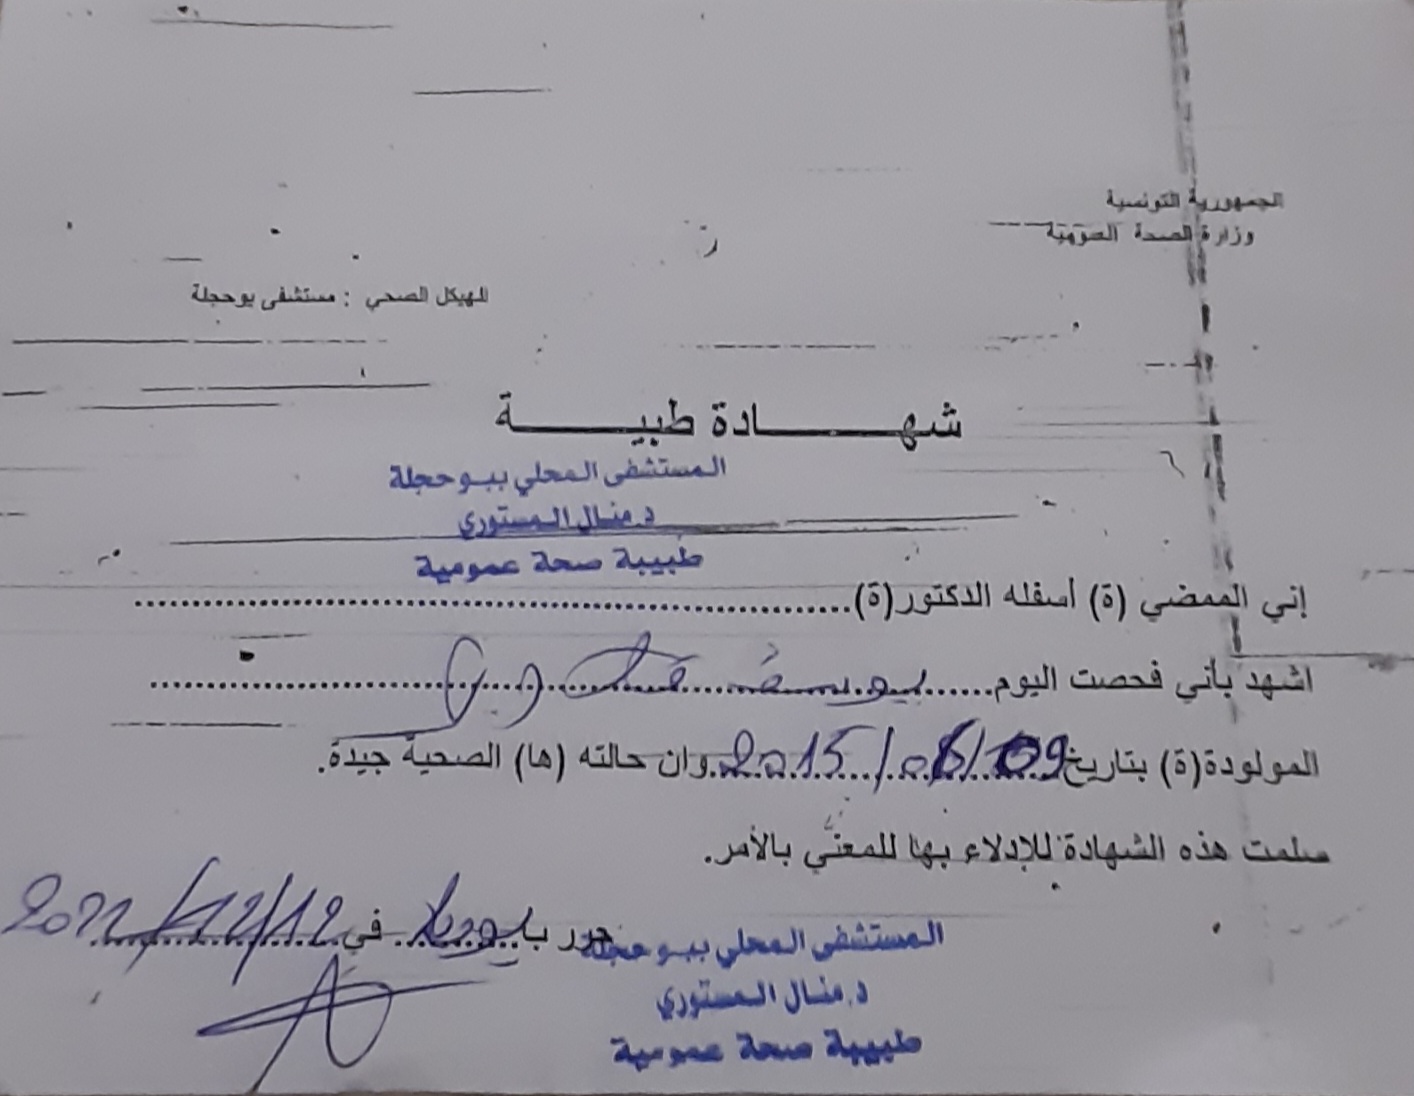 الجمهورية التونسية
وزارة الصحة العمومية
الهيكل الصحي : مستشفى بوحجلة
شهادة طبية
المستشفى المحلي ببوحجلة
د. منال المستوري
طبيبة صحة عمومية
إني الممضي (ة) أسفله الدكتور(ة)
اشهد بأني فحصت اليوم يوسف
المولودة(ة) بتاريخ 2015/06/09 وان حالته (ها) الصحية جيدة.
سلمت هذه الشهادة للإدلاء بها للمعني بالأمر.
حرر ب في 12/12/2022
المستشفى المحلي ببوحجلة
د. منال المستوري
طبيبة صحة عمومية